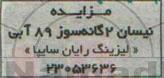 مزایده
نیسان ۲گانه‌سوز ۸۹ آبی
« لیزینگ رایان سایپا »
۲۳۰۵۳۶۳۶